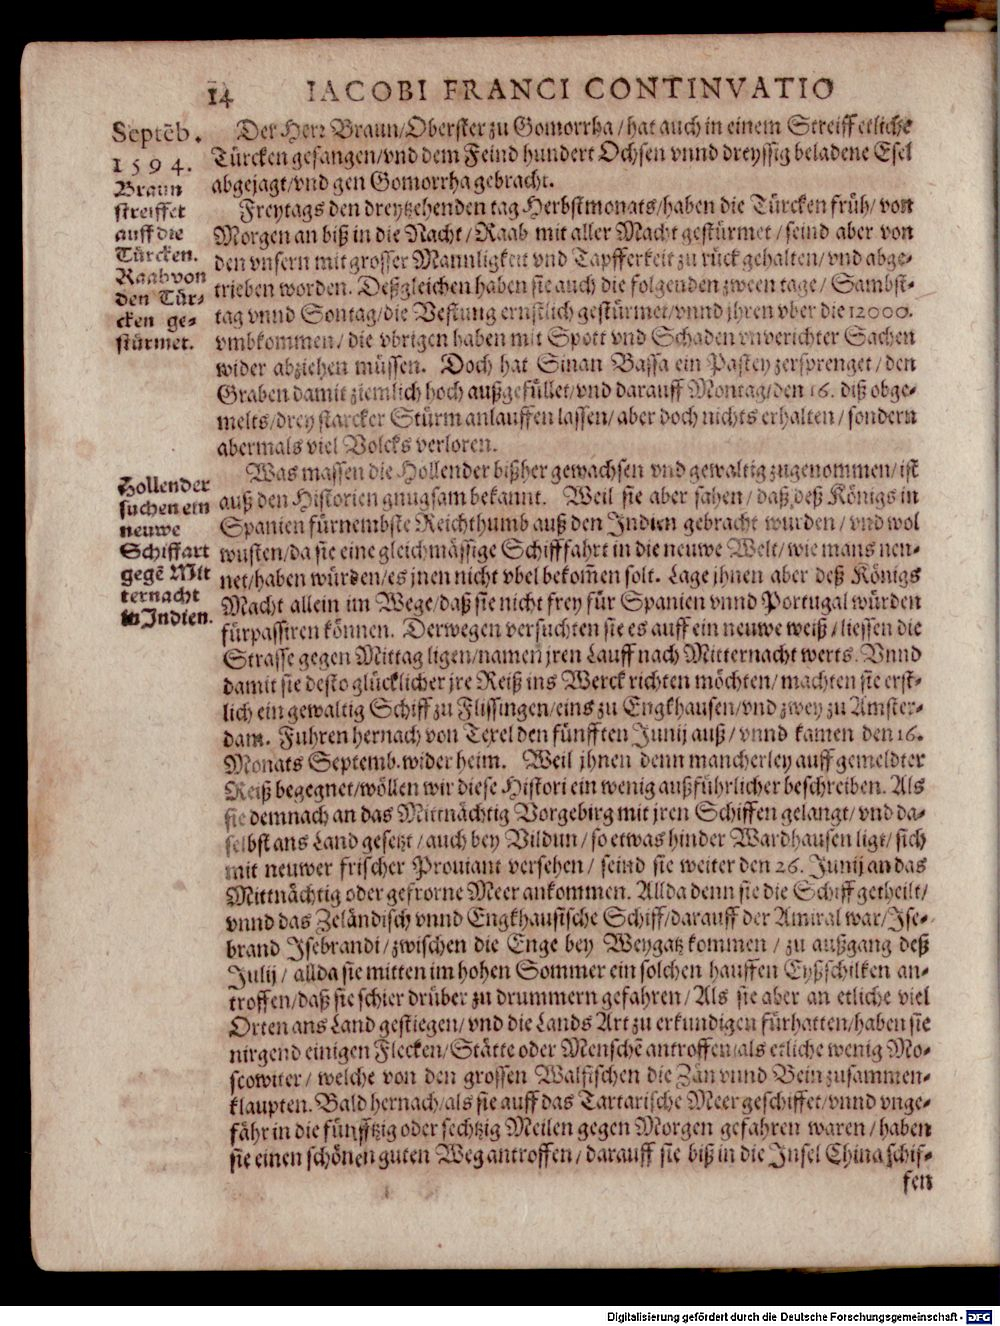 14 IACOBI FRANCI CONTINVATIO
Septēb.
1594.
Braun
streiffet
auff die
Türcken.
Raab von
den Tür-
cken ge-
stürmet.
Der Herr Braun/Oberster zu Gomorrha/hat auch in einem Streiff etliche
Türcken gefangen/vnd dem Feind hundert Ochsen vnnd dreyssig beladene Esel
abgejagt/vnd gen Gomorrha gebracht.
Freytags den dreytzehenden tag Herbstmonats/haben die Türcken früh/von
Morgen an biß in die Nacht/Raab mit aller Macht gestürmet/seind aber von
den vnsern mit grosser Mannligkeit vnd Tapfferkeit zu rück gehalten/vnd abge-
trieben worden. Deßgleichen haben sie auch die folgenden zween tage/Sambst-
tag vnnd Sontag/die Vestung ernstlich gestürmet/vnnd jhren vber die 12000.
vmbkommen/die vbrigen haben mit Spott vnd Schaden vnverichter Sachen
wider abziehen müssen. Doch hat Sinan Bassa ein Pastey zersprenget/den
Graben damit ziemlich hoch außgefüllet/vnd darauff Montag/den 16. diß obge-
melts/drey starcker Stürm anlauffen lassen/aber doch nichts erhalten/sondern
abermals viel Volcks verloren.
Hollender
suchen ein
neuwe
Schiffart
gegē Mit
ternacht
in Indien.
Was massen die Hollender bißher gewachsen vnd gewaltig zugenommen/ist
auß den Historien gnugsam bekannt. Weil sie aber sahen/daß deß Königs in
Spanien fürnembste Reichthumb auß den Indien gebracht wurden/vnd wol
wusten/da sie eine gleichmässige Schifffahrt in die neuwe Welt/wie mans nen-
net/haben würden/es jnen nicht vbel bekom̄en solt. Lage jhnen aber deß Königs
Macht allein im Wege/daß sie nicht frey für Spanien vnnd Portugal würden
fürpassiren können. Derwegen versuchten sie es auff ein neuwe weiß/liessen die
Strasse gegen Mittag ligen/namen jren Lauff nach Mitternacht werts. Vnnd
damit sie desto glücklicher jre Reiß ins Werck richten möchten/machten sie erst-
lich ein gewaltig Schiff zu Flissingen/eins zu Engkhausen/vnd zwey zu Amster-
dam. Fuhren hernach von Texel den fünfften Junij auß/vnnd kamen den 16.
Monats Septemb. wider heim. Weil jhnen denn mancherley auff gemeldter
Reiß begegnet/wöllen wir diese Histori ein wenig außführlicher beschreiben. Als
sie demnach an das Mittnächtig Vorgebirg mit jren Schiffen gelangt/vnd da-
selbst ans Land gesetzt/auch bey Vildun/so etwas hinder Wardhausen ligt/sich
mit neuwer frischer Prouiant versehen/seind sie weiter den 26. Junij an das
Mittnächtig oder gefrorne Meer ankommen. Allda denn sie die Schiff getheilt/
vnnd das Zeländisch vnnd Engkhausische Schiff/darauff der Amiral war/Ise-
brand Isebrandi/zwischen die Enge bey Weygatz kommen/zu außgang deß
Julij/allda sie mitten im hohen Sommer ein solchen hauffen Eyßschilken an-
troffen/daß sie schier drüber zu drummern gefahren/Als sie aber an etliche viel
Orten ans Land gestiegen/vnd die Lands Art zu erkundigen fürhatten/haben sie
nirgend einigen Flecken/Stätte oder Menschē antroffen/als etliche wenig Mo-
scowiter/welche von den grossen Walfischen die Zän vnnd Bein zusammen-
klaupten. Bald hernach/als sie auff das Tartarische Meer geschiffet/vnnd vnge-
fähr in die fünfftzig oder sechtzig Meilen gegen Morgen gefahren waren/haben
sie einen schönen guten Weg antroffen/darauff sie biß in die Insel China schif-
fen
Digitalisierung gefördert durch die Deutsche Forschungsgemeinschaft - DFG